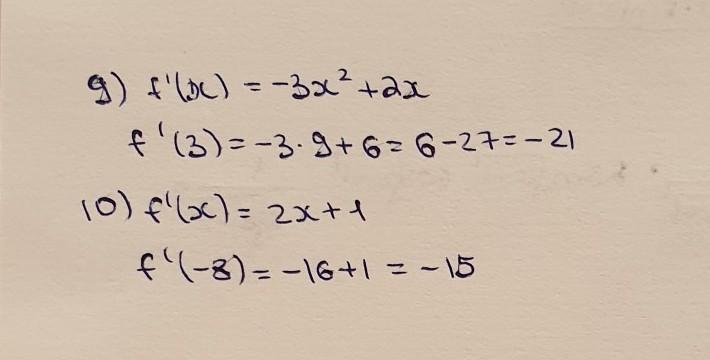 9) f'(x) = -3x² + 2x
f'(3) = -3 · 9 + 6 = 6 - 27 = -21
10) f'(x) = 2x + 1
f'(-8) = -16 + 1 = -15